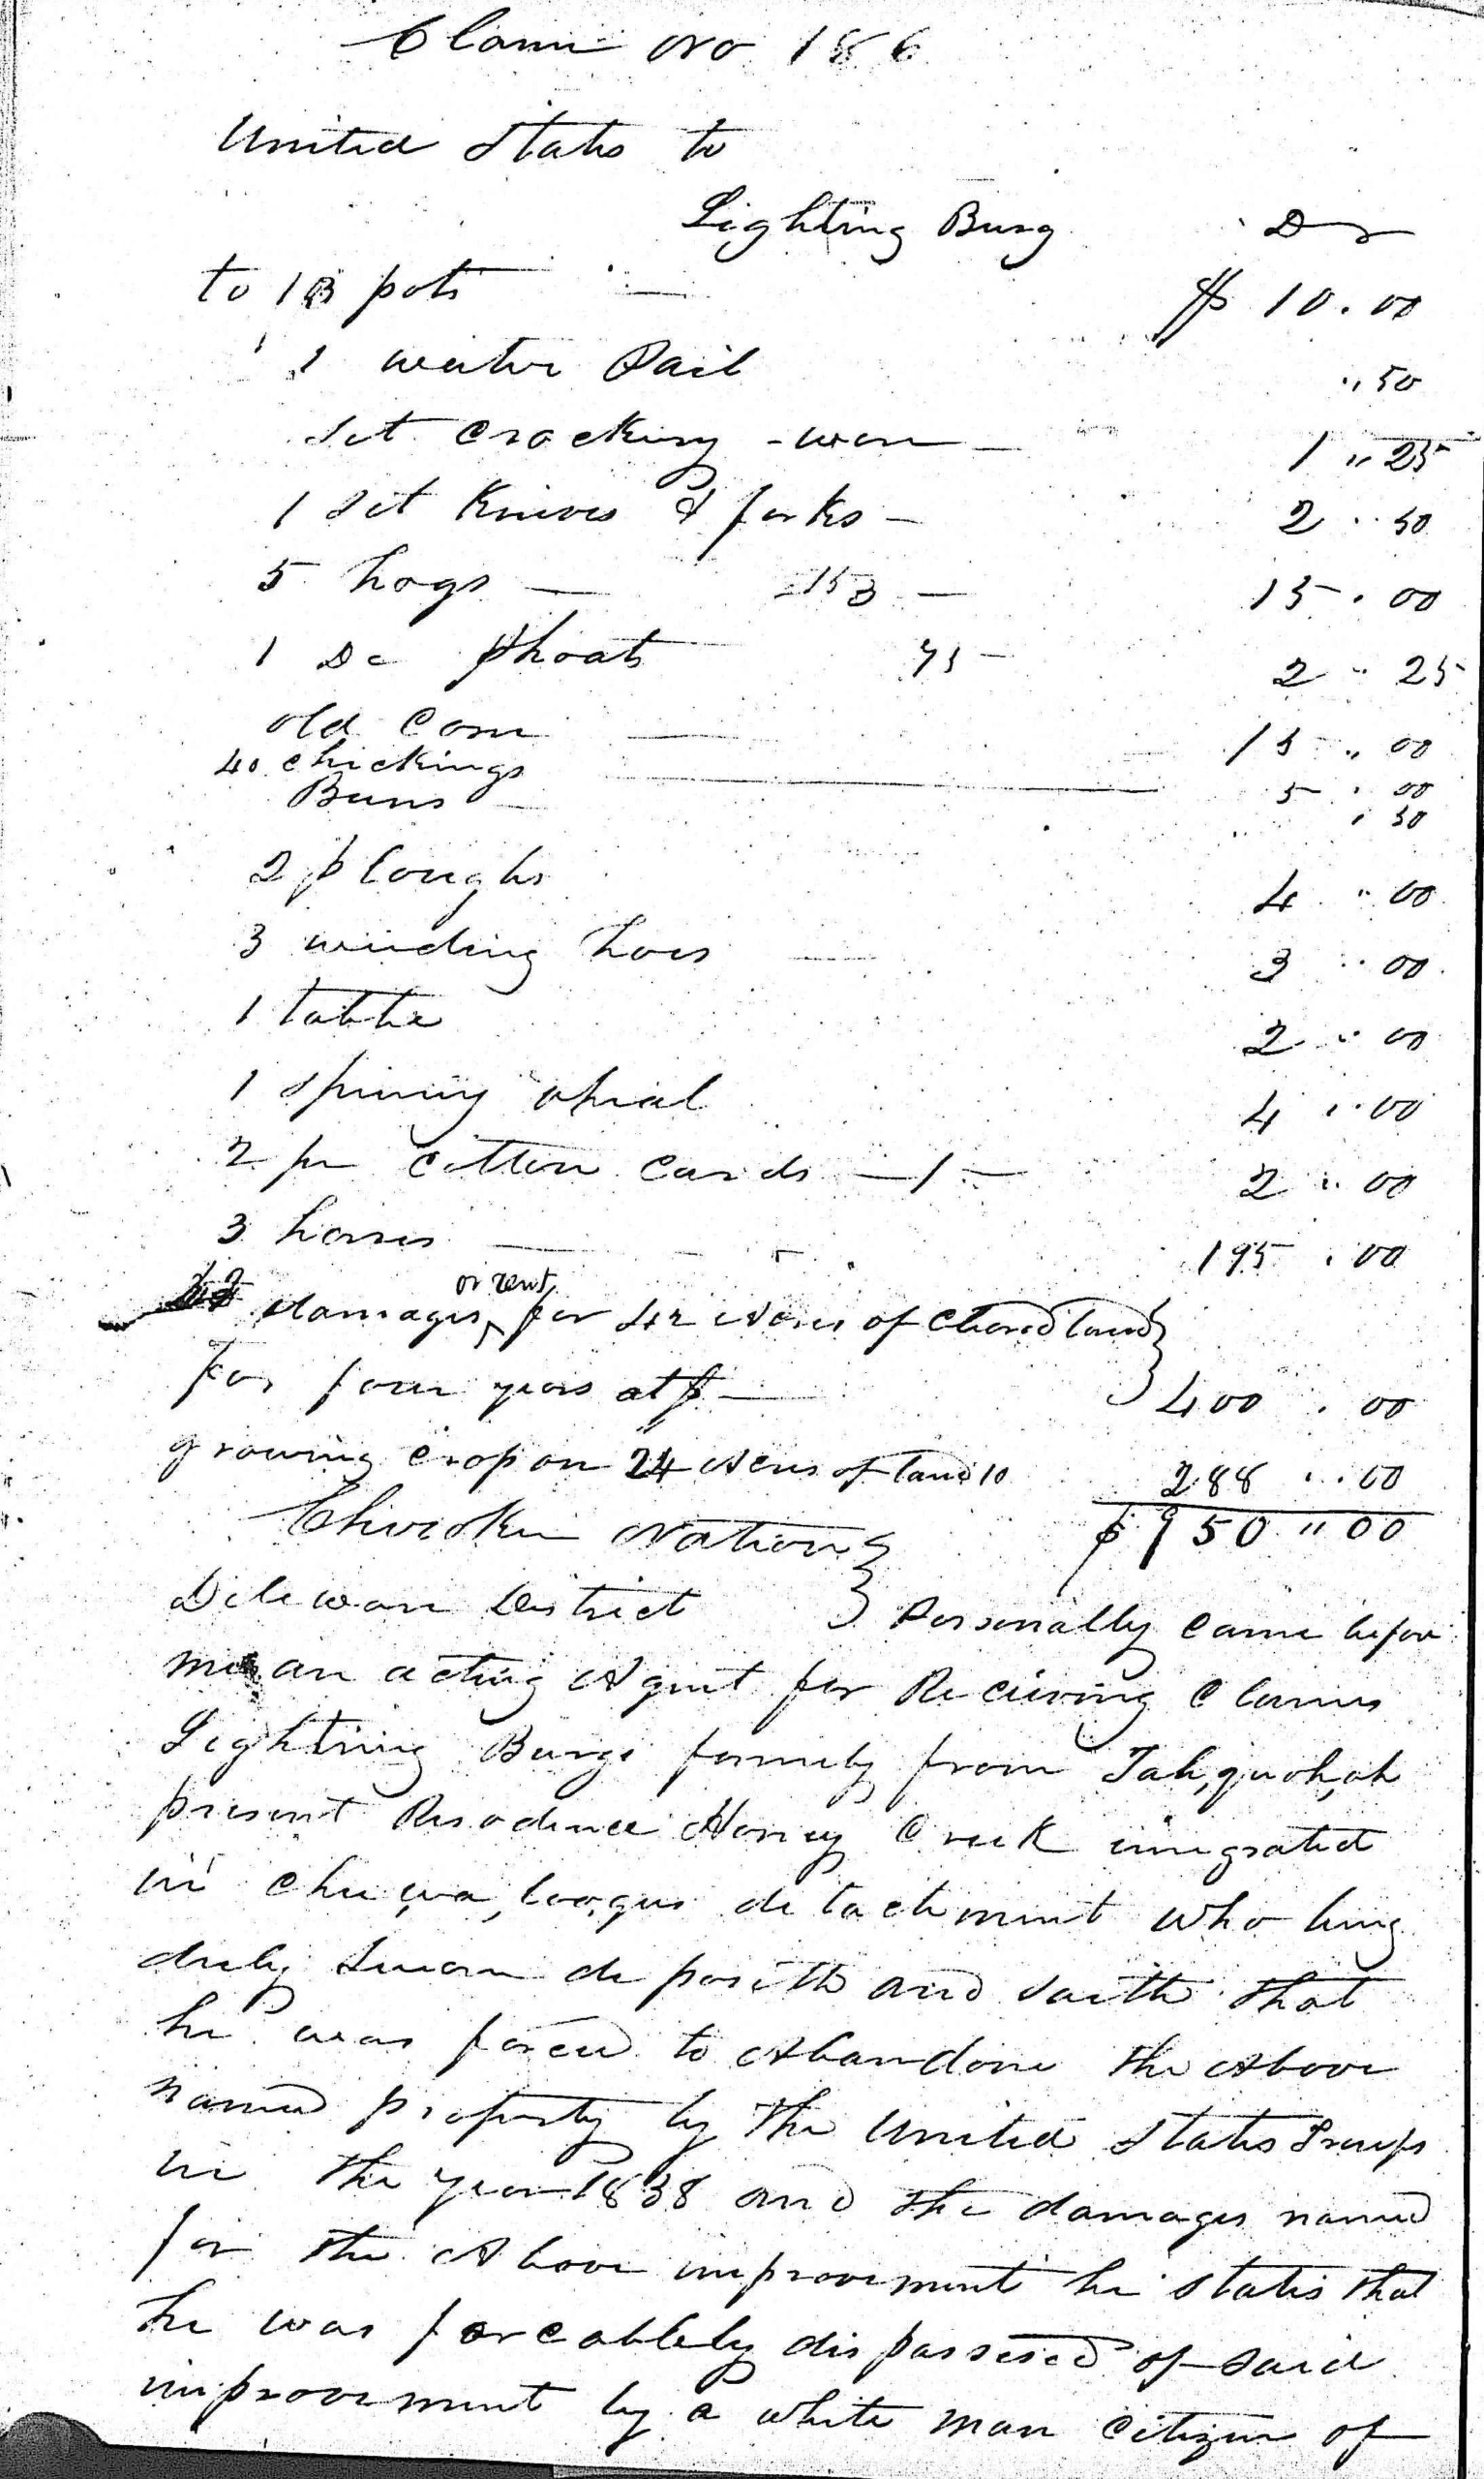 Claim No 186
United States to
Lighting Burg Dr
to 13 pots $ 10.00
" 1 water Pail " 50
Set Crockery - ware 1 " 25
1 Set Knives & forks - 2 .. 50
5 hogs — 153 — 15 . 00
1 Do Shoats 75 — 2 " 25
old Corn 15 " 00
40 chickings 5 . 00
Beans . 50
2 ploughs 4 " 00
3 weeding hoes 3 " 00
1 table 2 " 00
1 Spining wheal 4 " 00
2 pr Cotten Cards — 1 — 2 " 00
3 horses 195 . 00
damages or rent for 42 Acres of Cleared land
for four years at $ — 400 . 00
growing crop on 24 Acres of land 10 288 .. 00
$ 950 " 00
Cherokee Nation
Deleware District Personally came before
me an acting Agent for Receiving Claims
Lightning Burge formely from Tah,quoh,oh
present Resodence Honey Creek imigrated
in Che,wa,loo,gus detachment who being
duly Sworn deposeth and saith that
he was forced to Abandone the Above
named property by the United States Troups
in the year 1838 and the damages named
for the Above improvement he states that
he was forceablely dispassesed of said
improvement by a white man Citizen of